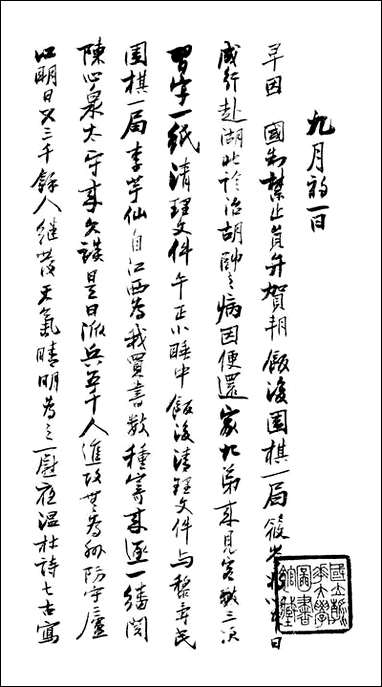 九月初一日
早因 國制禁止員弁賀朔 飯後圍棋一局 筱岑 日
成行赴湖北診治胡帥之病因便還家九弟來見客數三次
習字一紙清理文件午正小睡中飯後清理文件與黎壽民
圍棋一局李芋仙自江西為我買書數種寄來逐一繙閱
陳心泉太守來久談是日派兵五千人進攻無為州防守廬
江明日又三千餘人繼發天氣晴明為之一慰夜溫杜詩七古寫